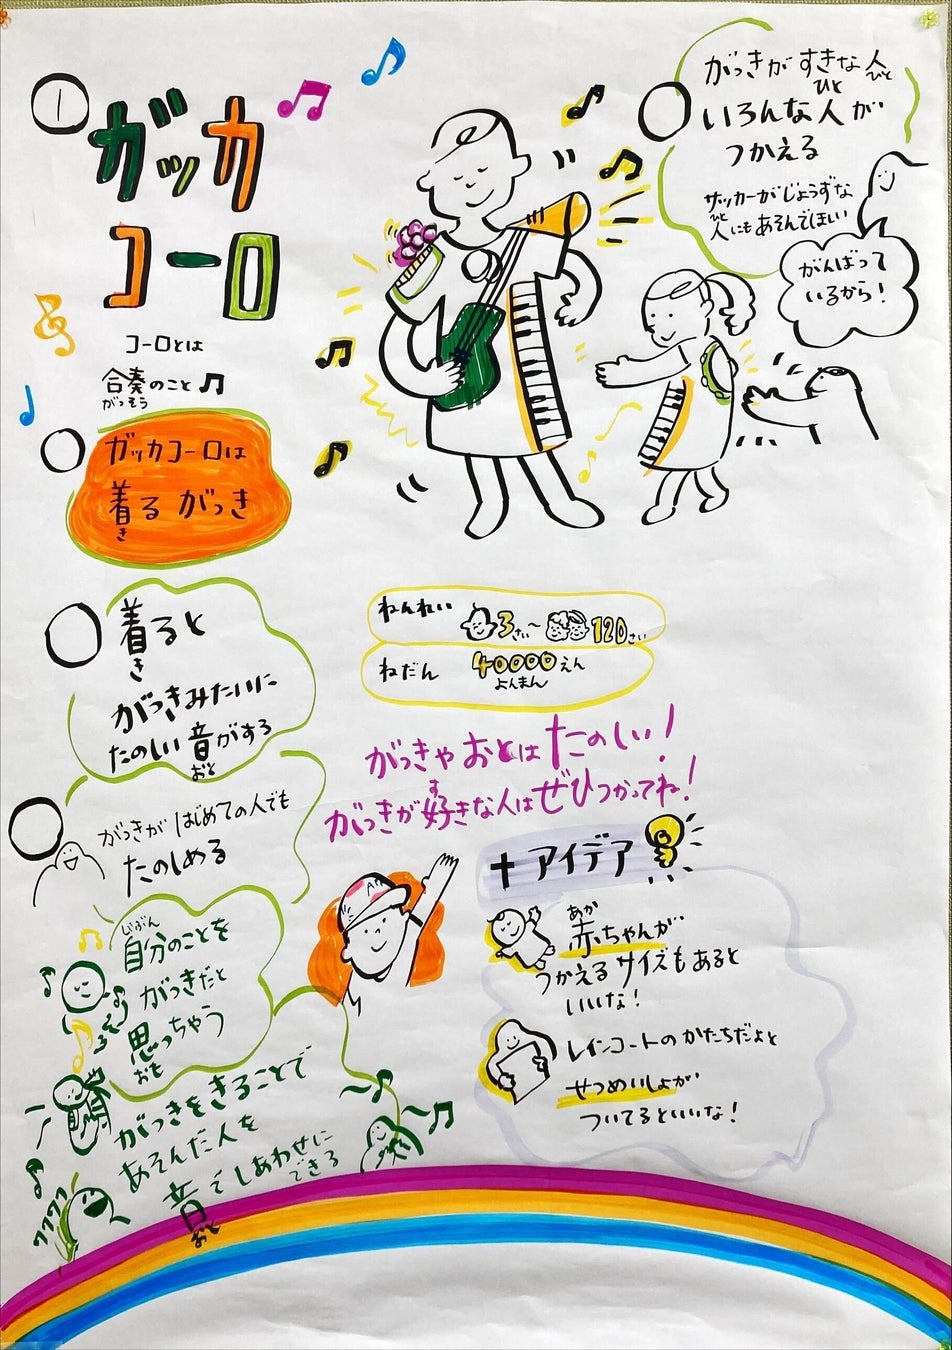 1
ガッカ
コーロ
コーロとは
合奏のこと
がっそう
ガッカコーロは
着る がっき
き
着ると
き
がっきみたいに
たのしい 音がする
おと
がっきが はじめての人でも
たのしめる
じぶん
自分のことを
がっきだと
思っちゃう
おも
がっきをきることで
あそんだ人を
音でしあわせに
できる
おと
ワクワク
がっきが すきな 人
ひと
ひと
いろんな 人が
つかえる
サッカーがじょうずな
ひと
人にもあそんでほしい
がんばって
いるから!
ねんれい 3さい〜 120さい
ねだん 40000えん
よんまん
がっきや おとは たのしい!
す
がっきが好きな人は ぜひつかってね!
+アイデア
あか
赤ちゃんが
つかえるサイズもあると
いいな!
レインコートのかたちだよと
せつめいしょが
ついてるといいな!